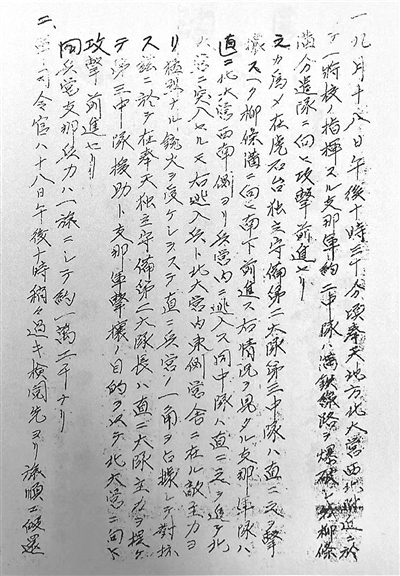 一、九月十八日午後十時三十分頃奉天地方北大営西北附近ニ於
テ一将校ノ指揮スル支那軍約二中隊ハ満鉄線路ヲ爆破シ我柳條
溝分遣隊ニ向ヒ攻撃前進セリ
之カ為メ在虎石台独立守備第二大隊第三中隊ハ直ニ之ヲ撃
攘スヘク柳條溝ニ向ヒ南下前進ス右情況ヲ見タル支那軍隊ハ
直ニ北大営西南側ヨリ兵営内ニ逃入ス同中隊ハ直ニ之ヲ追ヒ北
大営ニ突入セルモ右逃入兵ト北大営内東側営舎ニ在ル敵主力ヨ
リ猛烈ナル銃火ヲ受ケシヲ以テ直ニ兵営ノ一角ヲ占據シテ対抗
ス茲ニ於テ在奉天独立守備第二大隊長ハ直ニ大隊主力ヲ提ケ
テ第三中隊援助ト支那軍撃攘ノ目的ヲ以テ北大営ニ向ヒ
攻撃前進セリ
同兵営支那兵力ハ一旅ニシテ約一萬二千ナリ
二、軍司令官ハ十八日午後十時稍々過キ検閲先ヨリ旅順ニ帰還